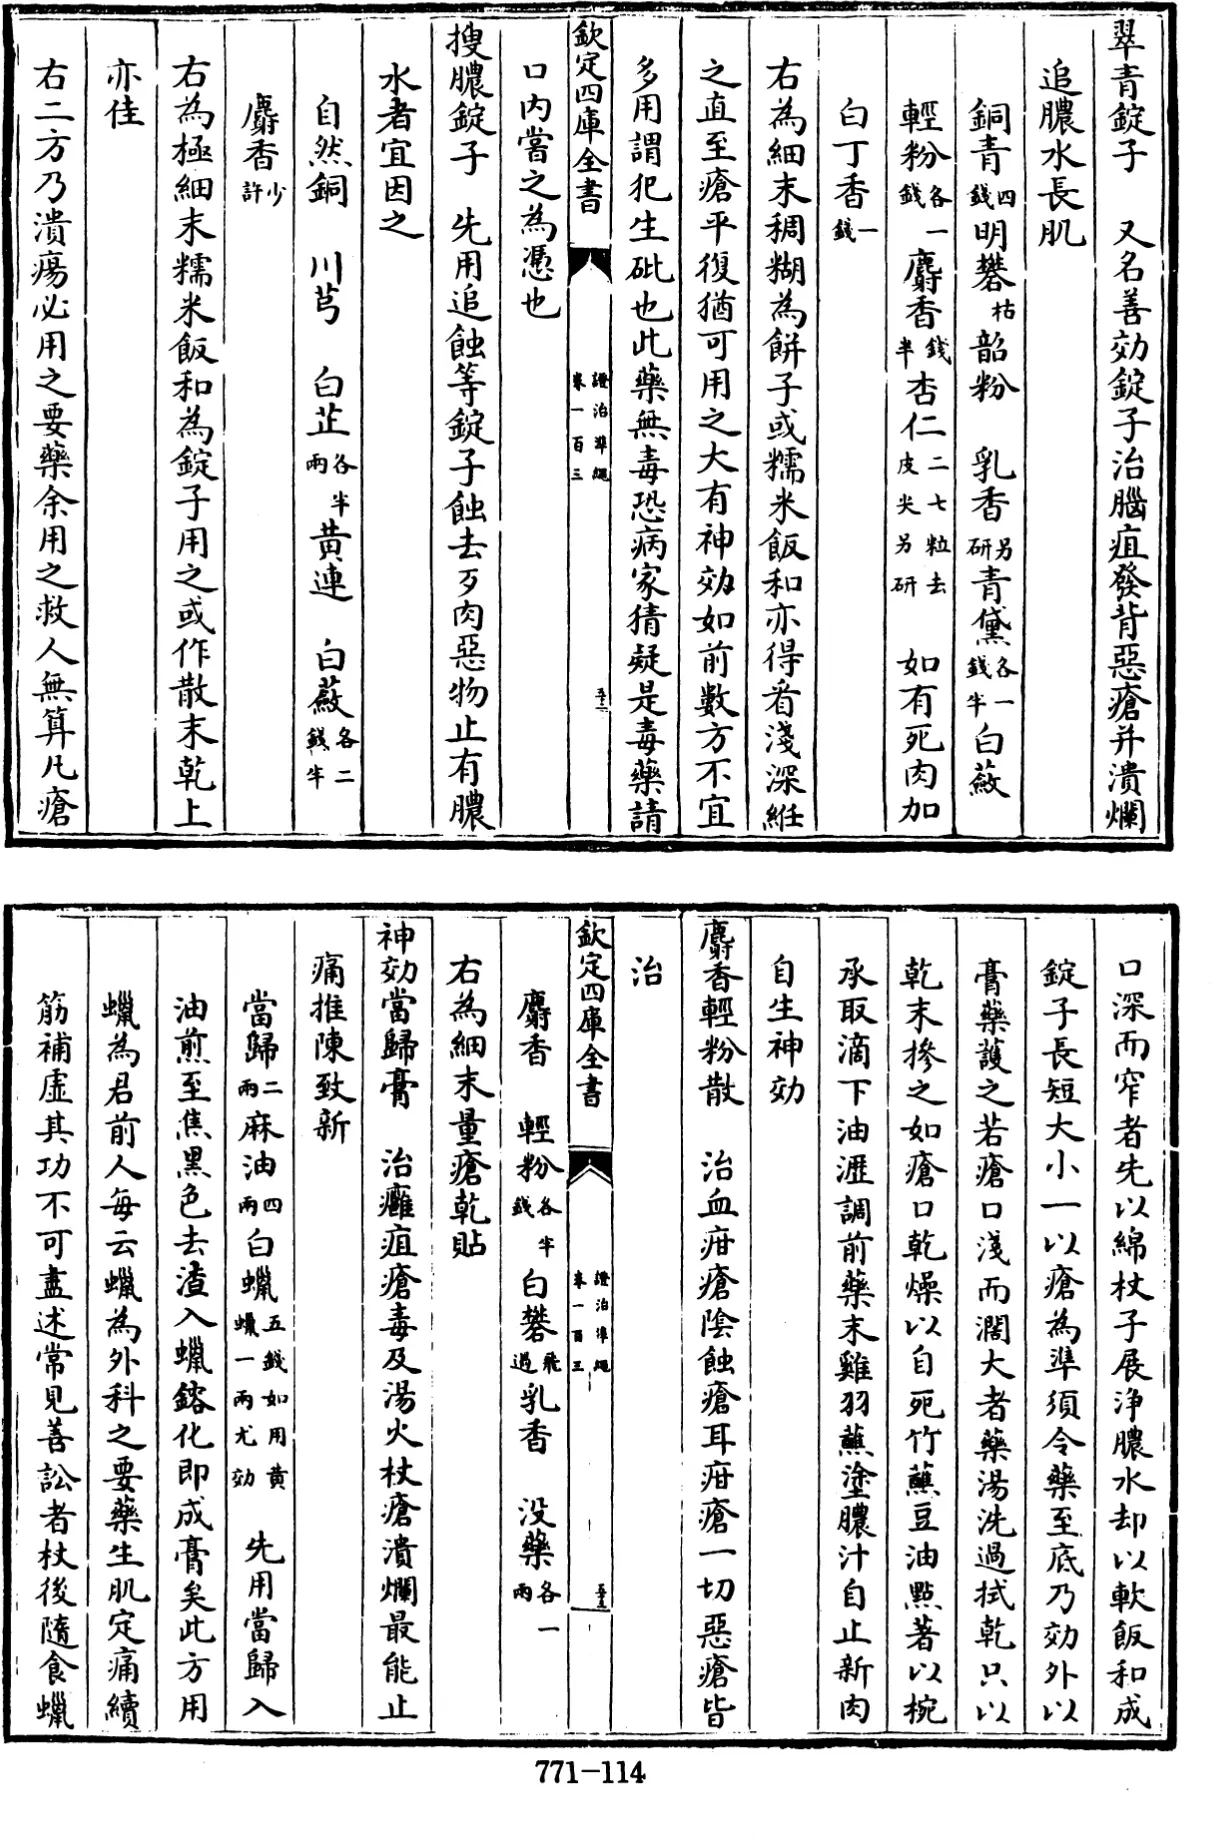 翠青錠子　又名善効錠子治腦疽發背惡瘡并潰爛
追膿水長肌
銅青四錢明礬枯韶粉　乳香另研青黛各一錢半白蘞
輕粉各一錢麝香半錢杏仁二七粒去皮尖另研　如有死肉加
白丁香一錢
右為細末稠糊為餅子或糯米飯和亦得看淺深維
之直至瘡平復猶可用之大有神効如前數方不宜
多用謂犯生砒也此藥無毒恐病家猜疑是毒藥請
欽定四庫全書　證治準繩卷一百三
口內嘗之為憑也
搜膿錠子　先用追蝕等錠子蝕去歹肉惡物止有膿
水者宜因之
自然銅　川芎　白芷各半兩黃連　白蘞各二錢半
麝香少許
右為極細末糯米飯和為錠子用之或作散末乾上
亦佳
右二方乃潰瘍必用之要藥余用之救人無算凡瘡
口深而窄者先以綿杖子展淨膿水却以軟飯和成
錠子長短大小一以瘡為準須令藥至底乃効外以
膏藥護之若瘡口淺而濶大者藥湯洗過拭乾只以
乾末摻之如瘡口乾燥以自死竹蘸豆油㸃著以椀
承取滴下油瀝調前藥末雞羽蘸塗膿汁自止新肉
自生神効
麝香輕粉散　治血疳瘡陰蝕瘡耳疳瘡一切惡瘡皆
治
欽定四庫全書　證治準繩卷一百三
麝香　輕粉各半錢白礬飛過乳香　没藥各一兩
右為細末量瘡乾貼
神効當歸膏　治癰疽瘡毒及湯火杖瘡潰爛最能止
痛推陳致新
當歸二兩麻油四兩白蠟五錢如用黃蠟一兩尤効　先用當歸入
油煎至焦黑色去渣入蠟鎔化即成膏矣此方用
蠟為君前人每云蠟為外科之要藥生肌定痛續
筋補虛其功不可盡述常見善訟者杖後隨食蠟
771-114